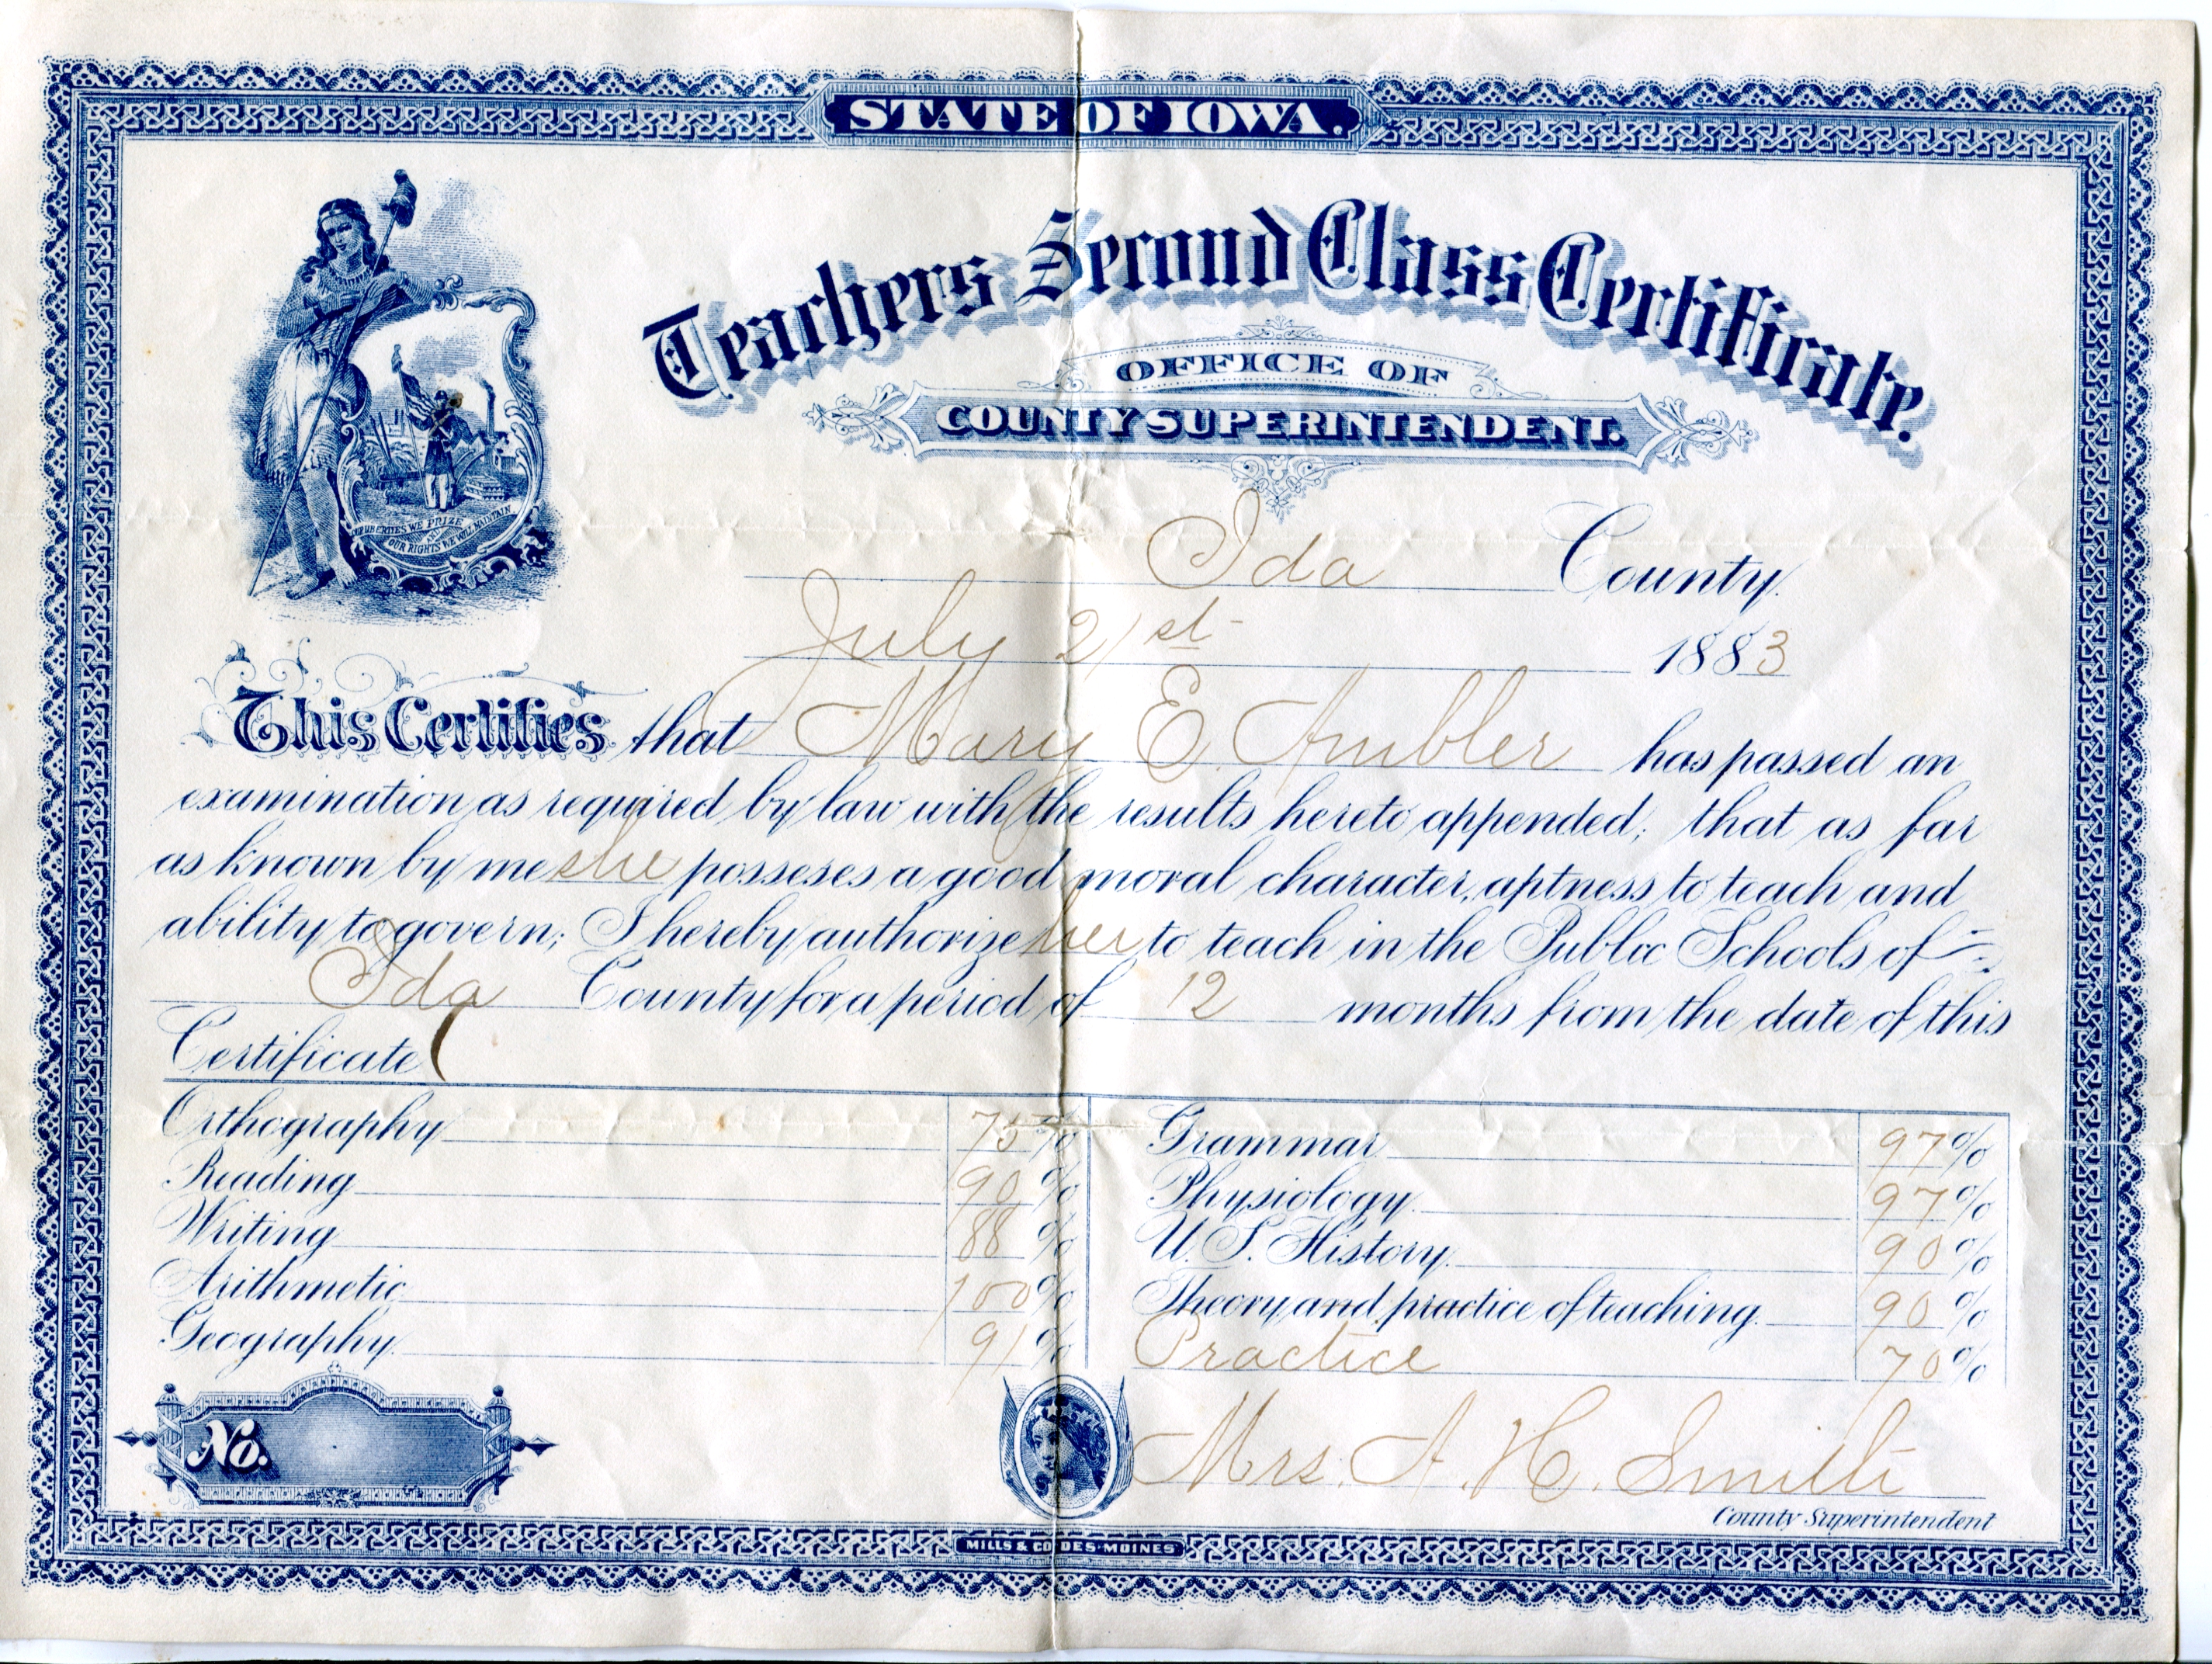 STATE OF IOWA.
Teachers Second Class Certificate.
OFFICE OF
COUNTY SUPERINTENDENT.
OUR LIBERTIES WE PRIZE
AND
OUR RIGHTS WE WILL MAINTAIN
Ida County.
July 21st 1883
This Certifies that Mary E. Ambler has passed an
examination as required by law with the results hereto appended; that as far
as known by me she posseses a good moral character, aptness to teach and
ability to govern; I hereby authorize her to teach in the Public Schools of
Ida County for a period of 12 months from the date of this
Certificate
Orthography 75%
Reading 90%
Writing 88%
Arithmetic 100%
Geography 91%
Grammar 97%
Physiology 97%
U.S. History 90%
Theory and practice of teaching 90%
Practice 70%
No.
Mrs. A. H. Smith
County Superintendent
MILLS & CO. DES-MOINES